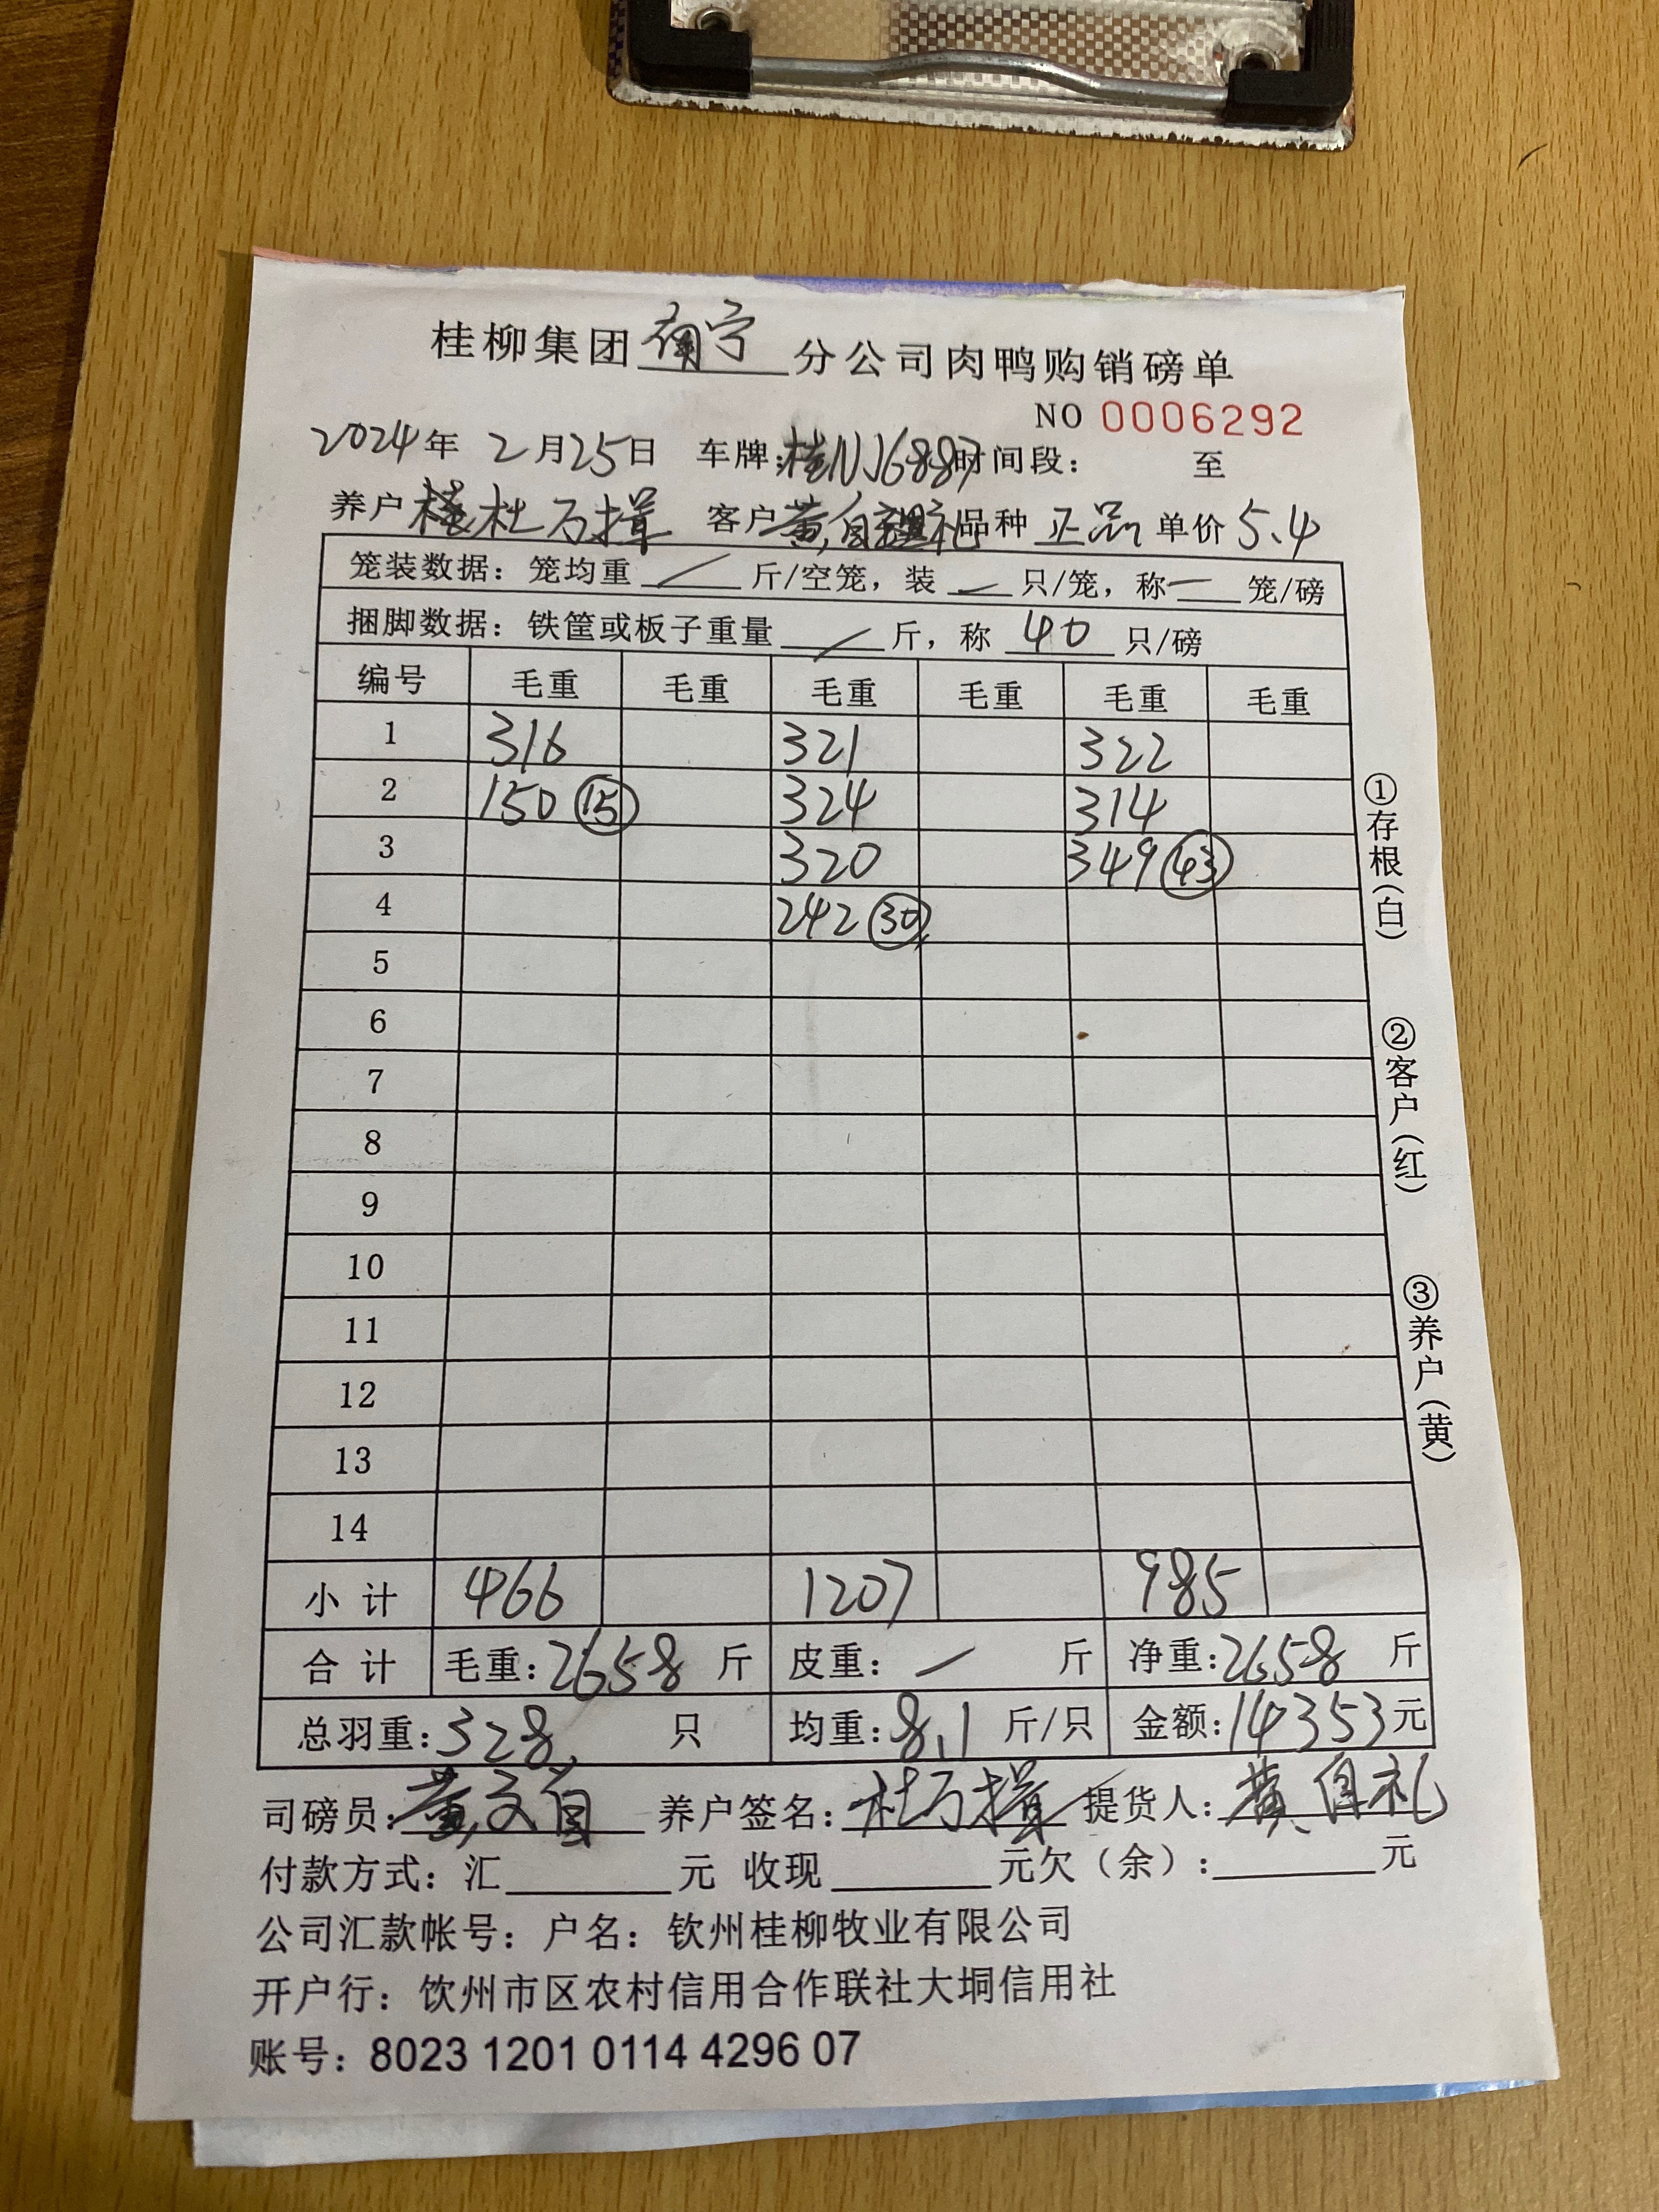 桂柳集团南宁分公司肉鸭购销磅单
NO 0006292
2024年 2月25日 车牌:桂NJ6887时间段: 至
养户 杜万 客户 黄自礼 品种 正品 单价 5.4
笼装数据: 笼均重 斤/空笼, 装 只/笼, 称 笼/磅
捆脚数据: 铁筐或板子重量 斤, 称 40 只/磅
编号 毛重 毛重 毛重 毛重 毛重 毛重
1 316 321 322
2 150 15 324 314
3 320 349 43
4 242 30
5
6
7
8
9
10
11
12
13
14
小计 466 1207 985
合计 毛重:2658 斤 皮重: 斤 净重:2658 斤
总羽重:328 只 均重:8.1 斤/只 金额:14353元
司磅员: 黄文 养户签名: 杜万 提货人: 黄自礼
付款方式: 汇 元 收现 元欠(余): 元
公司汇款帐号: 户名: 钦州桂柳牧业有限公司
开户行: 饮州市区农村信用合作联社大垌信用社
账号: 8023 1201 0114 4296 07
①存根(白)
②客户(红)
③养户(黄)